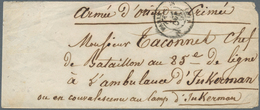 Armée d'orient Crimée
Monsieur Taconnet Chef
de Bataillon au 85e de Ligne
à L'ambulance d'Inkerman
ou en convalescence au camp d'Inkerman